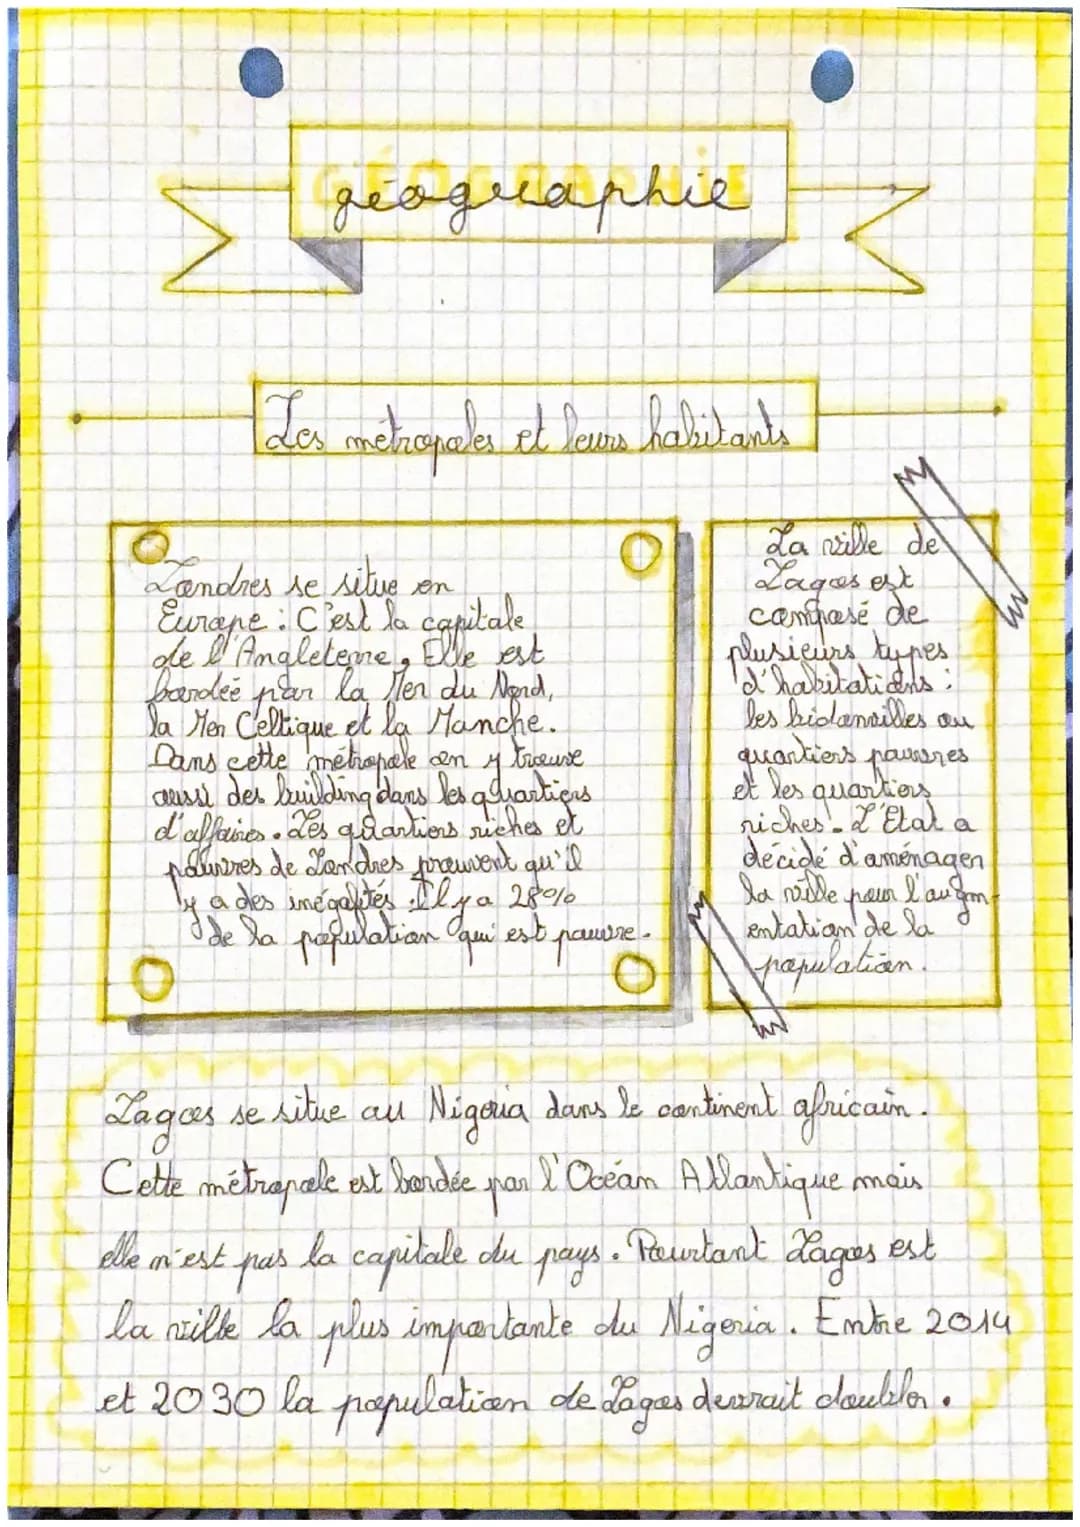 géographie
Les métropoles et leurs habitants
Londres se situe en
Europe : C'est la capitale
de l'Angleterre, Elle est
bordée par la Mer du Nord,
la Mer Celtique et la Manche.
Dans cette métropole on y trouve
aussi des building dans les quartiers
d'affaires. Les quartiers riches et
pauvres de Londres prouvent qu'il
y a des inégalités. Il y a 28%
de la population qui est pauvre.
La ville de
Lagos est
composé de
plusieurs types
d'habitations :
les bidonvilles ou
quartiers pauvres
et les quartiers
riches. L'Etat a
décidé d'aménager
la ville pour l'augm-
entation de la
population.
Lagos se situe au Nigeria dans le continent africain.
Cette métropole est bordée par l'Océan Atlantique mais
elle n'est pas la capitale du pays. Pourtant Lagos est
la ville la plus importante du Nigeria. Entre 2014
et 2030 la population de Lagos devrait doubler.